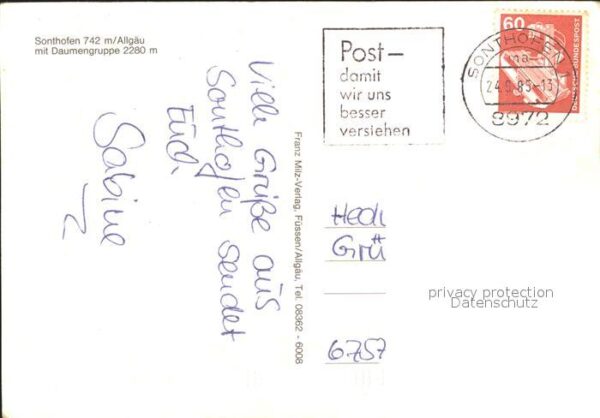 Sonthofen 742 m/Allgäu
mit Daumengruppe 2280 m
Viele Grüße aus
Sonthofen sendet
Euch
Sabine
Franz Milz-Verlag, Füssen/Allgäu, Tel. 08362 - 6008
Post–
damit
wir uns
besser
verstehen
60
DEUTSCHE BUNDESPOST
SONTHOFEN 1
ma
8972
Hedi
Grü
6757
privacy protection
Datenschutz